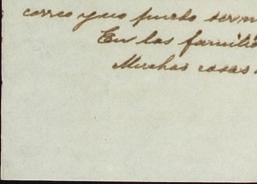 correo y no puedo ser m
En las famili
Muchas cosas